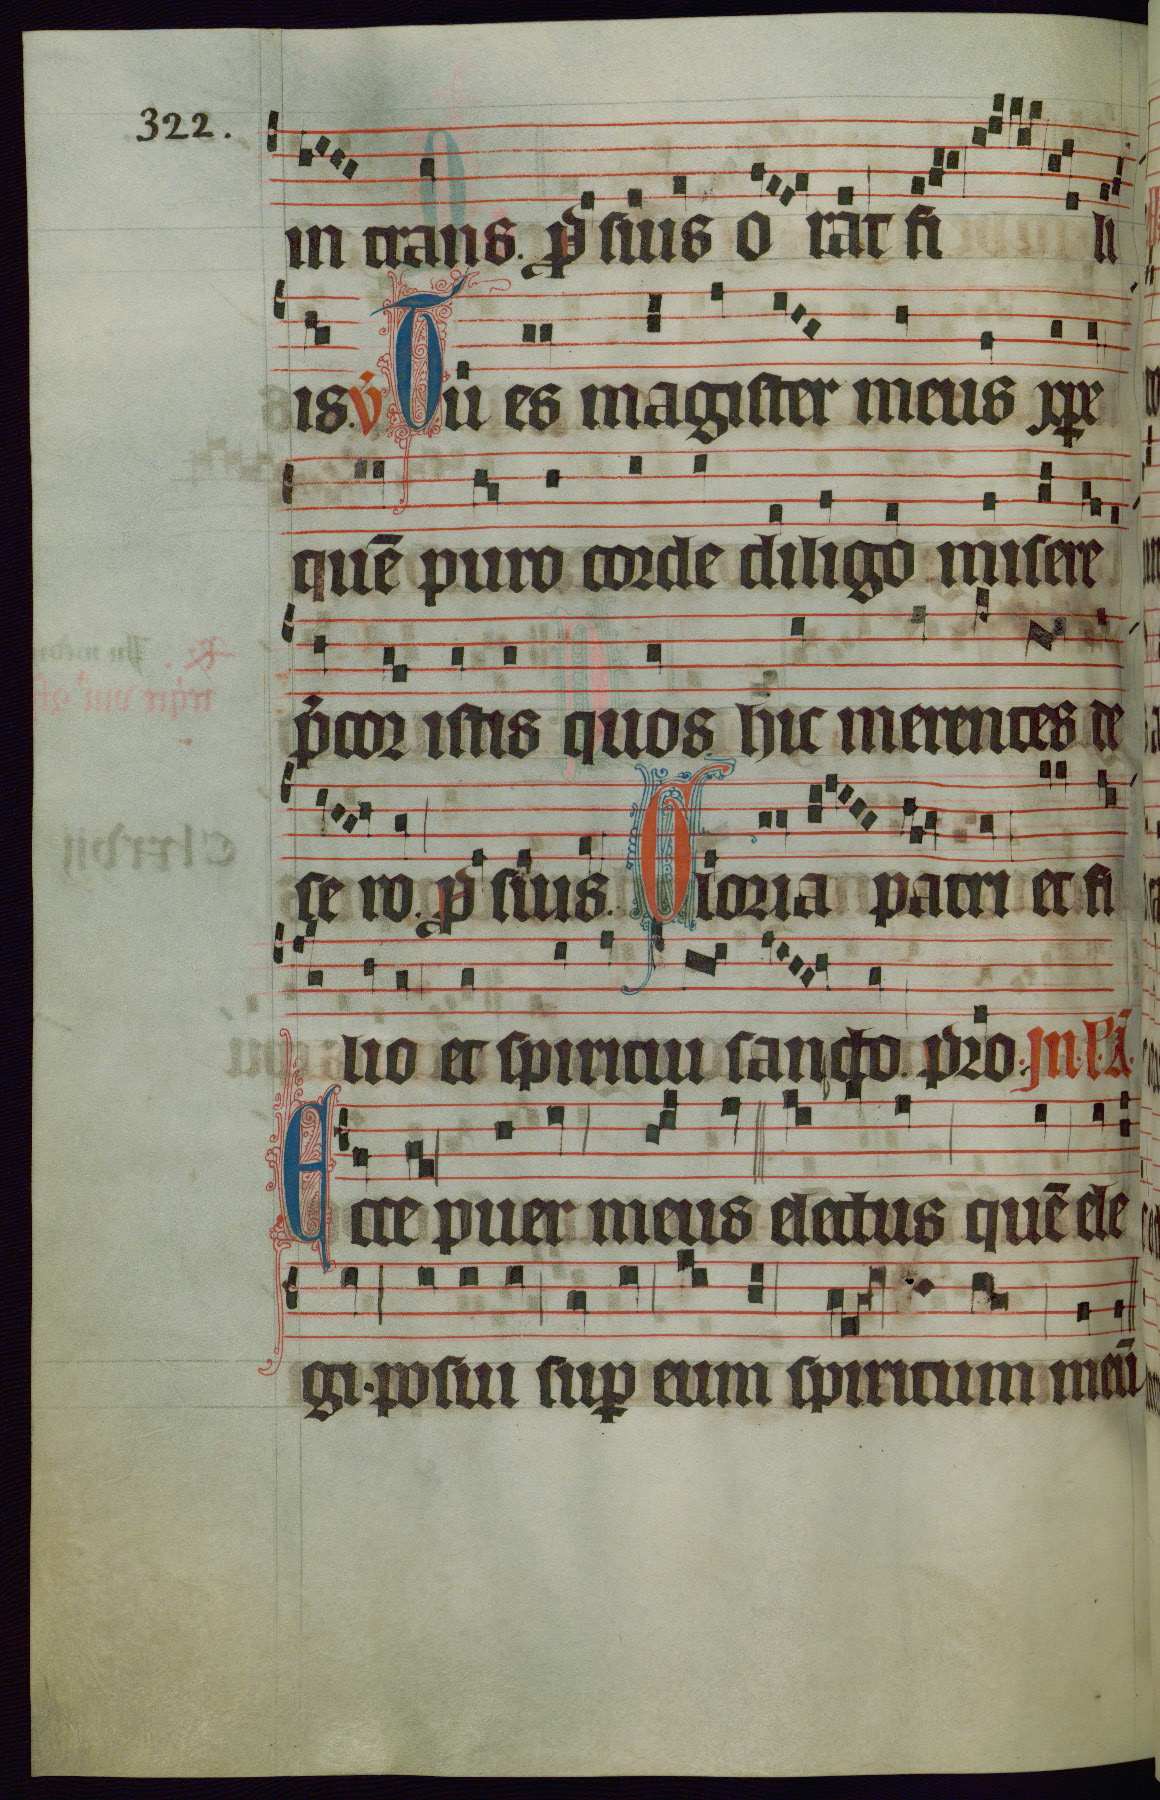 322.
in trans. ꝓ sius o rat fi li
is. v̾ Tu es magister meus xp̄e
quē puro corde diligo misere
p̄cor istis quos hic merentes de
se ro. ꝓ sius. Gloria patri et fi
lio et spiritui sancto. pro. In. l. A.
Ecce puer meus electus quē ele
gi. posui sup̱ eum spiritum meū